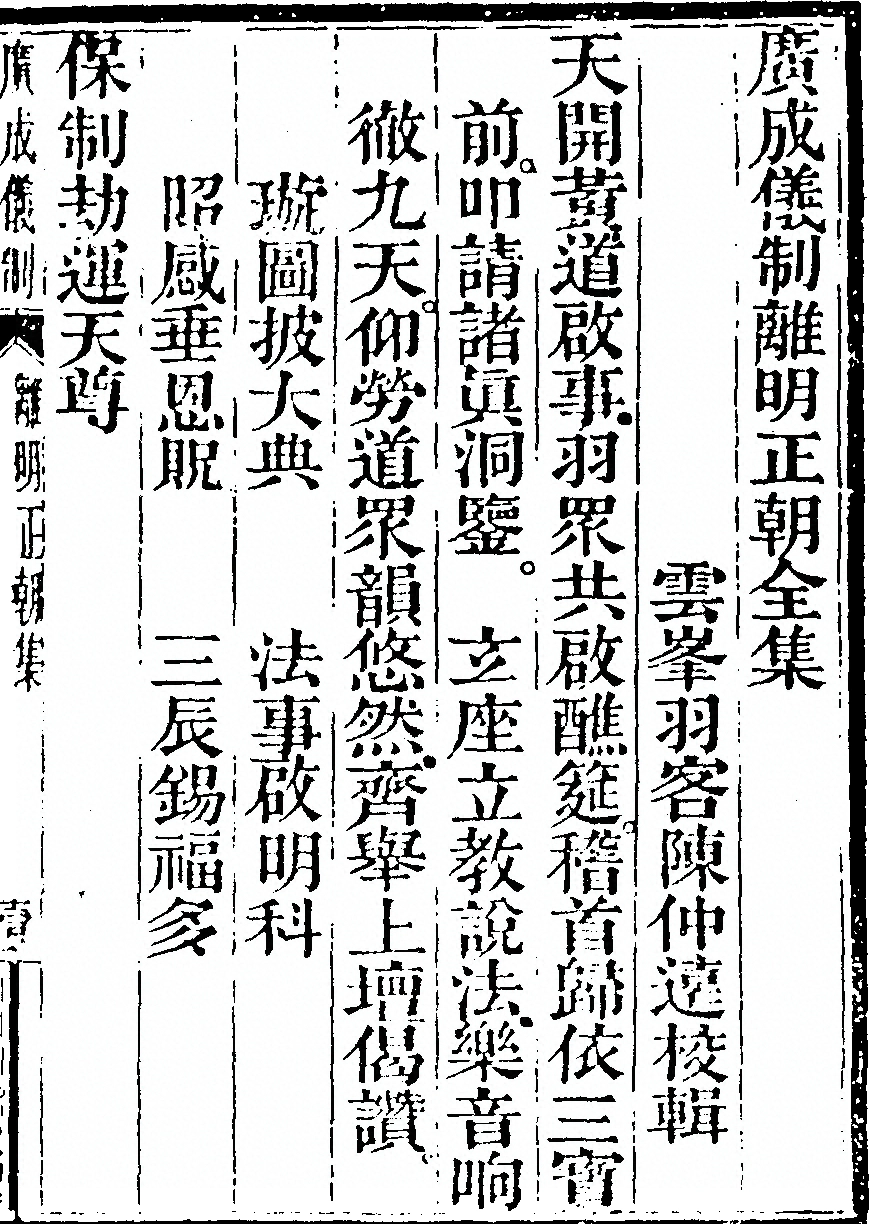 廣成儀制離明正朝全集
雲峯羽客陳仲遠校輯
天開黃道啟事羽眾共啟醮筵。稽首歸依三寶
前。叩請諸眞洞鑒。　立座立教說法樂音响
徹九天。仰勞道眾韻悠然齊舉上壇偈讚。
璇圖披大典　法事啟明科
昭感垂恩貺　三辰錫福多
保制劫運天尊
廣成儀制　離明正朝集　壹